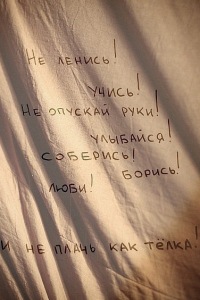 Не ленись!
Учись!
Не опускай руки!
Улыбайся!
Соберись!
Борись!
Люби!
И не плачь как тёлка!